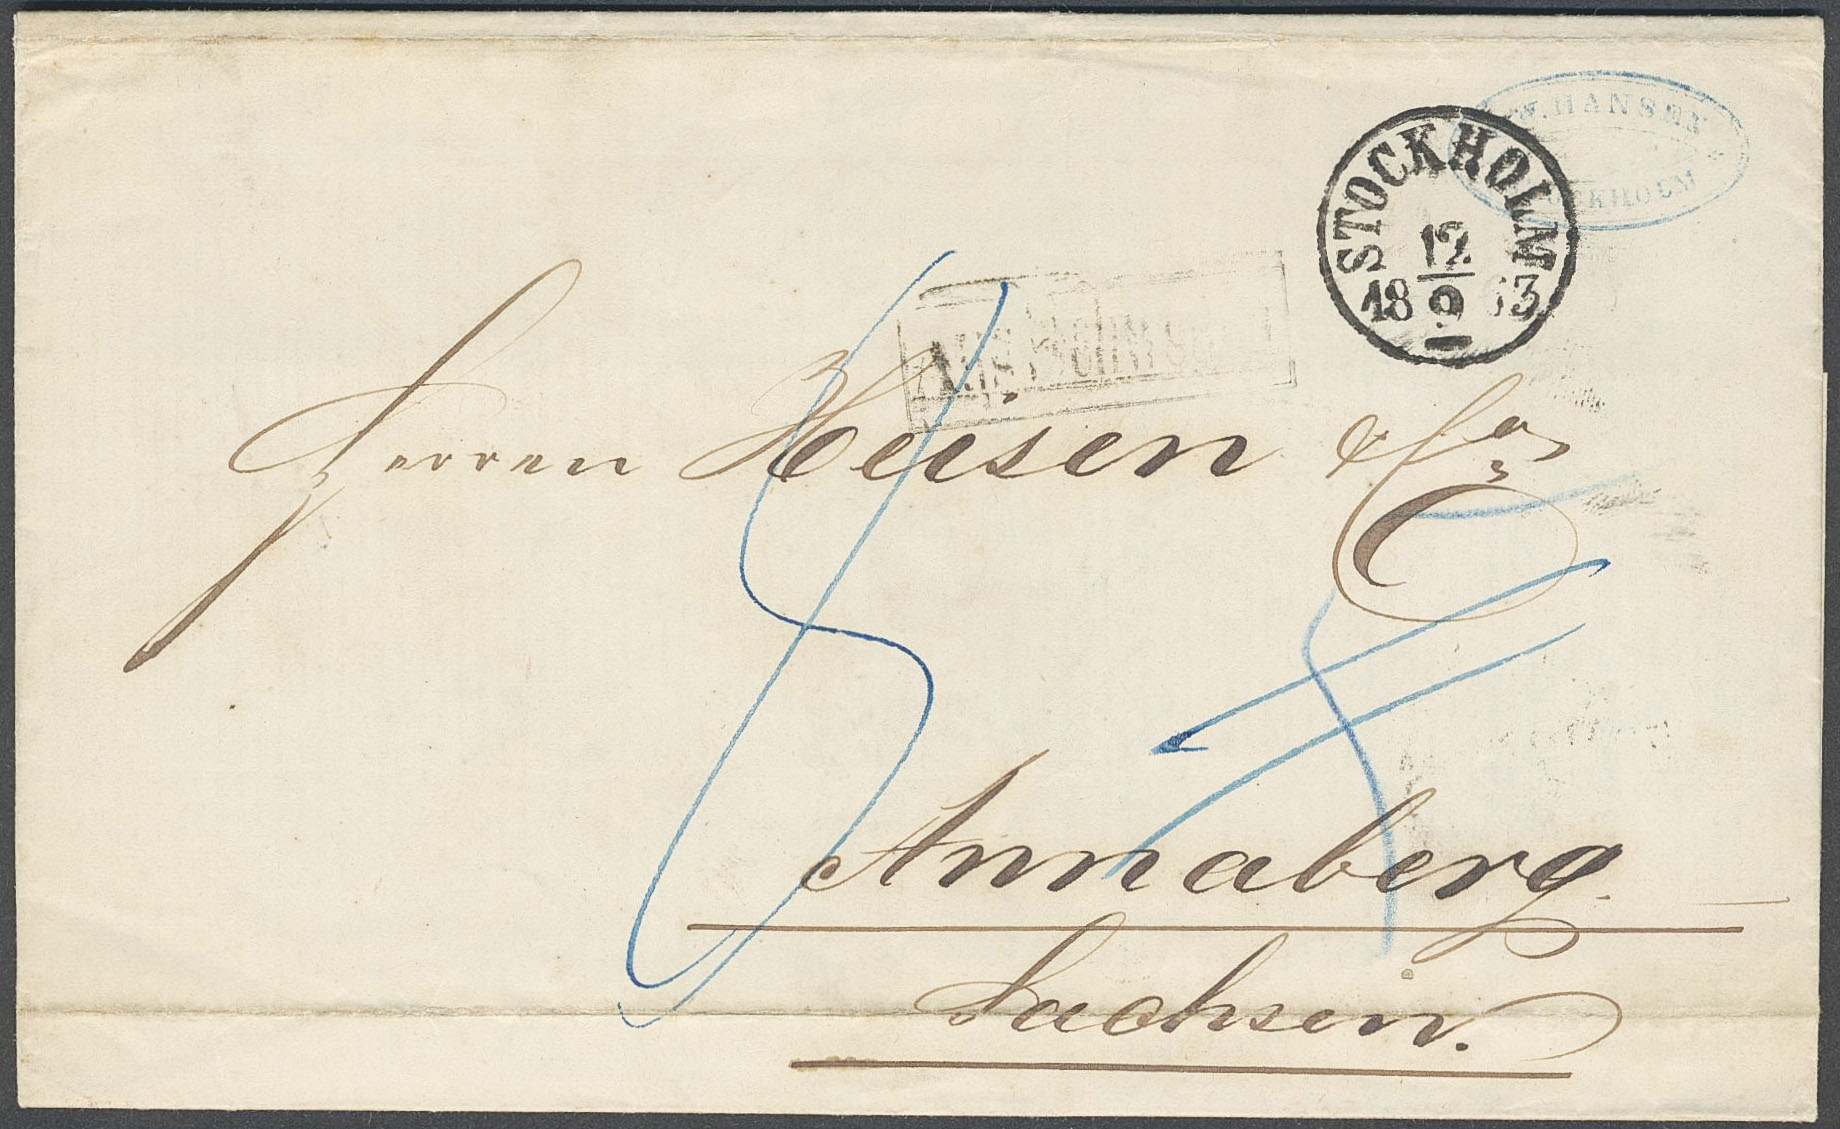 W. HANSEN
STOCKHOLM
STOCKHOLM
12
18 9 63
Herren Heisen & Co
Annaberg.
Sachsen.